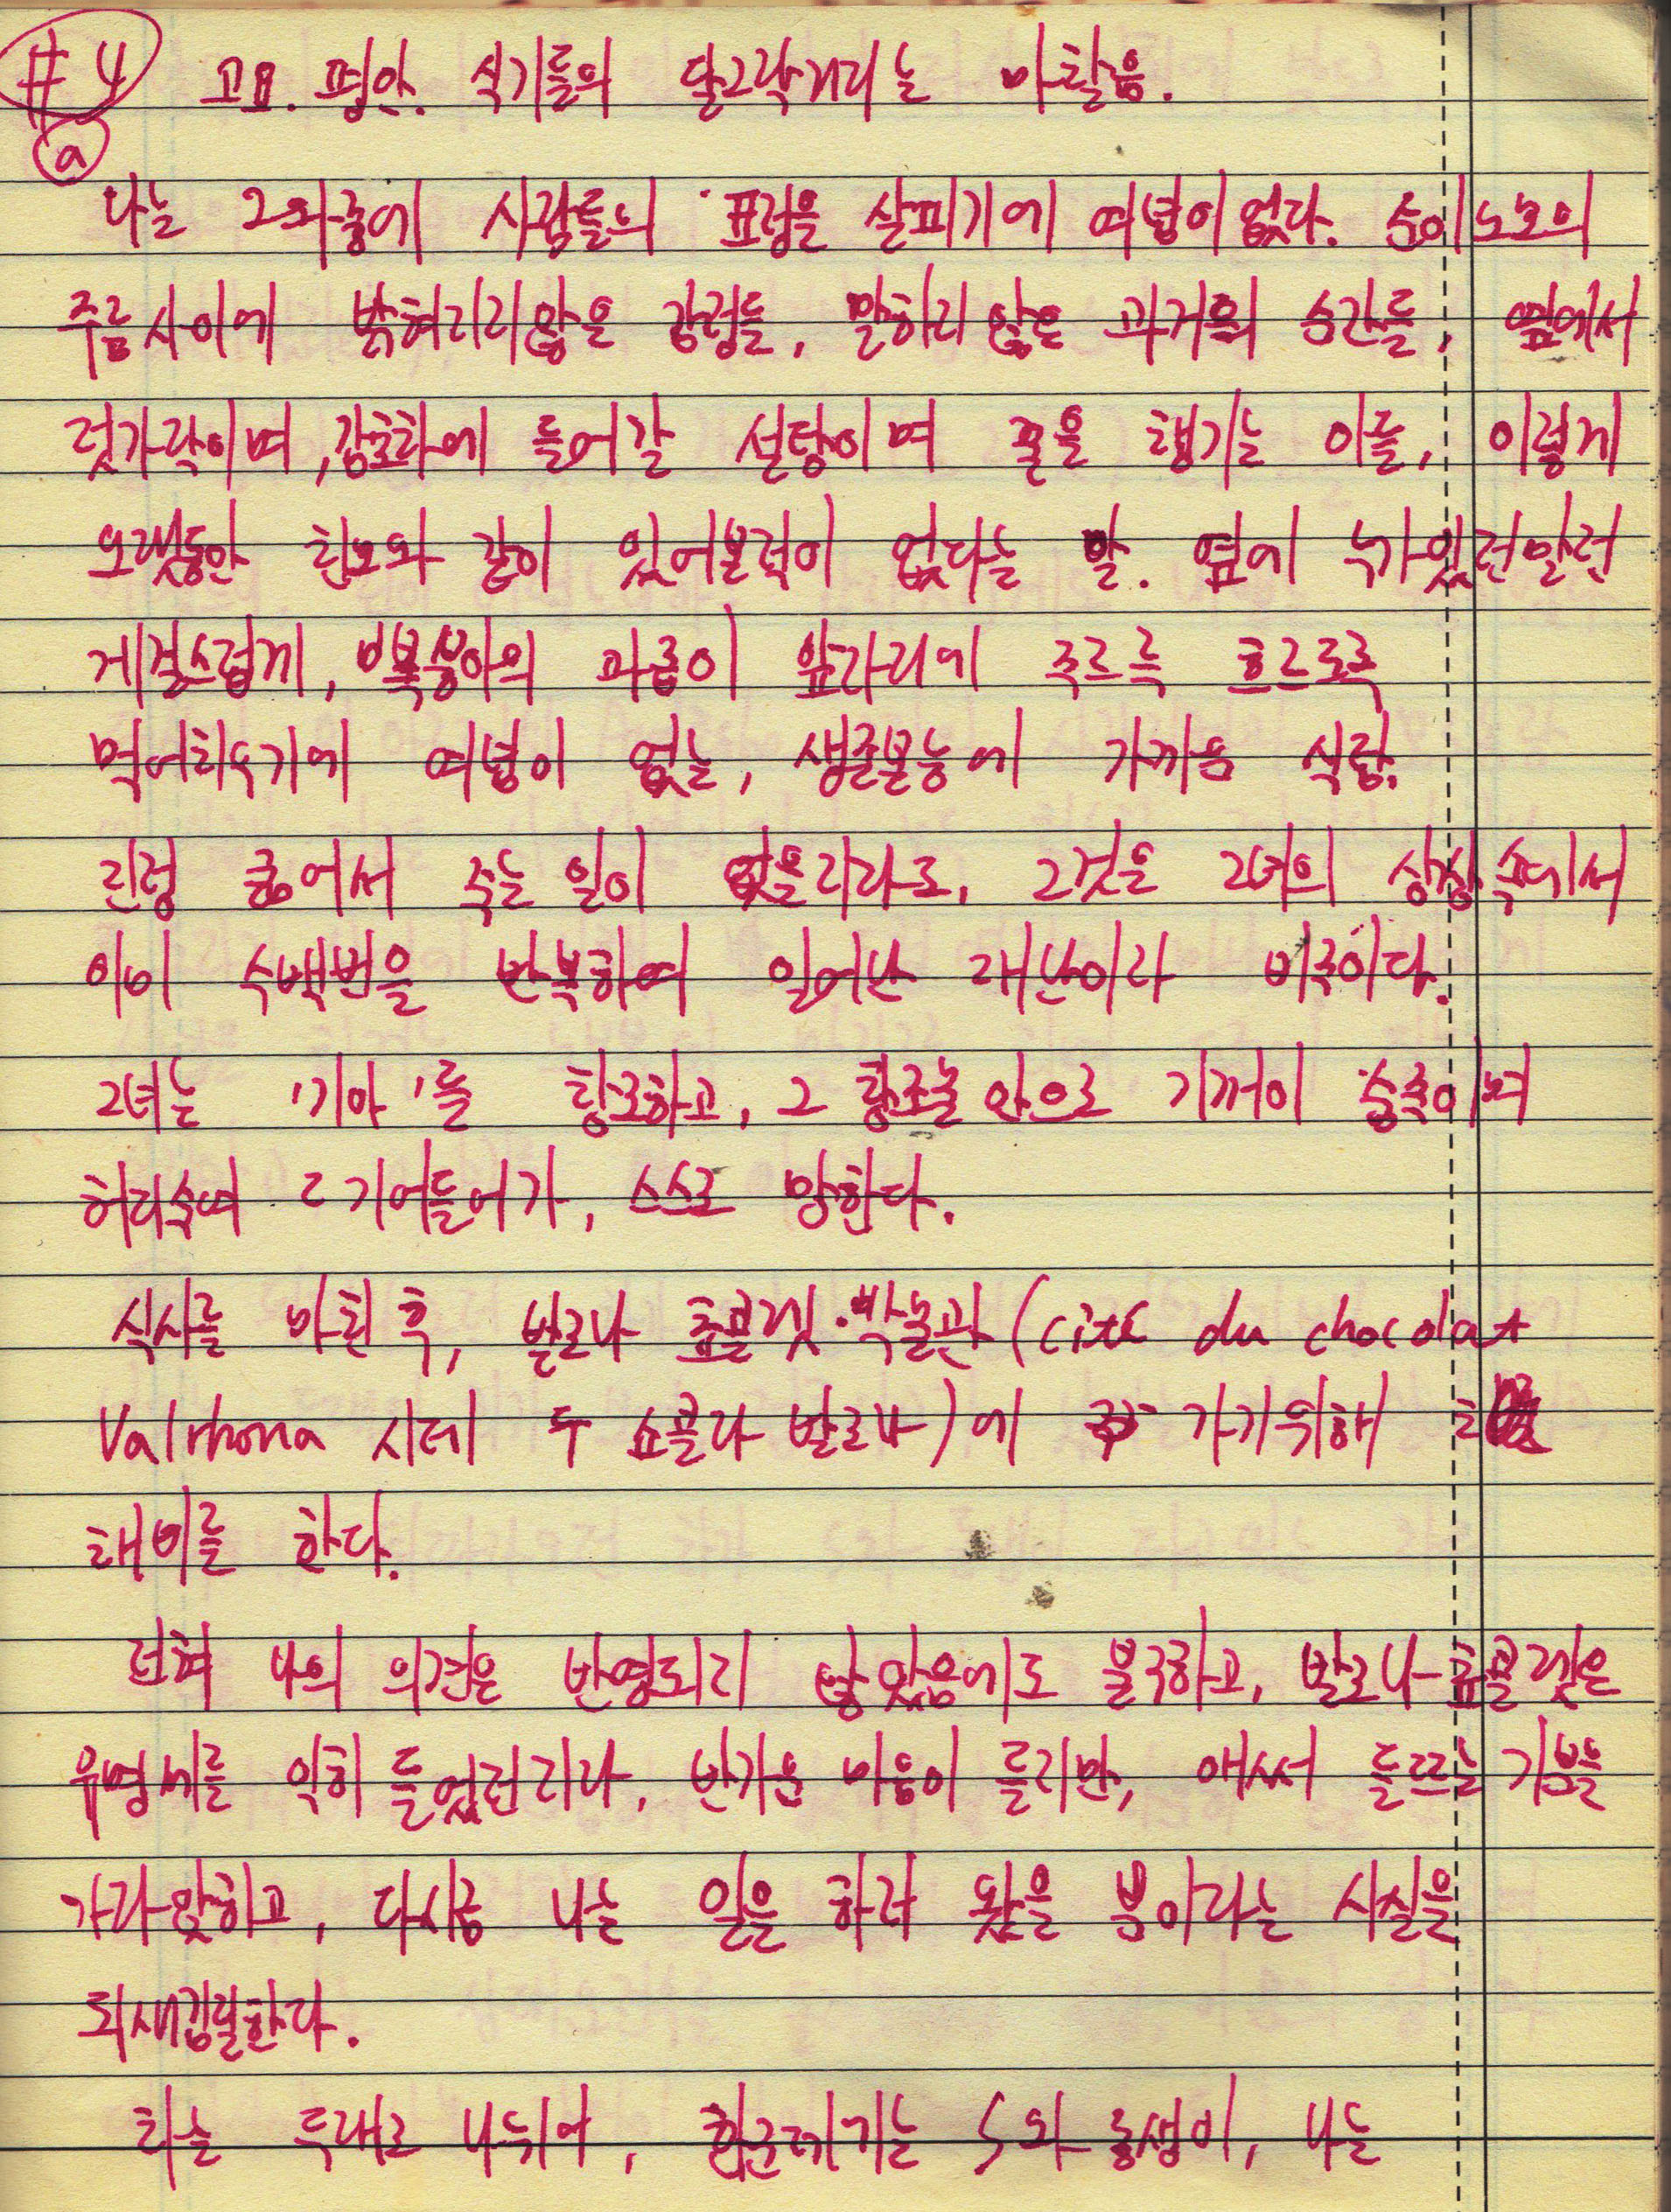 #4 고요. 평안. 식기들의 달그락거리는 마찰음.
ⓐ
나는 그 와중에 사람들의 표정을 살피기에 여념이 없다. 순이노모의
주름 사이에 밝혀지지않은 감정들, 말하지 않은 과거의 순간들, 옆에서
젓가락이며, 감초차에 들어갈 설탕이며 꿀을 챙기는 이들, 이렇게
오랫동안 친모와 같이 있어본적이 없다는 말. 옆에 누가있던말던
게걸스럽게, 복숭아의 과즙이 앞자리에 주르륵 흐르도록
먹어치우기에 여념이 없는, 생존본능에 가까운 식탐.
진정 굶어서 죽는 일이 없을지라도, 그것은 그녀의 상상 속에서
이미 수백번을 반복하여 일어난 재난이자 비극이다.
그녀는 '기아'를 창조하고, 그 창조물 안으로 기꺼이 숨죽이며
허리숙여 기어들어가, 스스로 망한다.
식사를 마친 후, 발로나 쵸콜렛 박물관 (cite du chocolat
Valrhona 시테 두 쇼콜라 발로나)에 가기위해
채비를 한다.
전혀 나의 의견은 반영되지 않았음에도 불구하고, 발로나 쵸콜렛은
유명세를 익히 들었던지라, 반가운 마음이 들지만, 애써서 들뜨는 기분을
가라앉히고, 다시금 나는 일을 하러 왔을 뿐이라는 사실을
되새김질한다.
차는 두대로 나뉘어, 한군데에는 S와 동생이, 나는